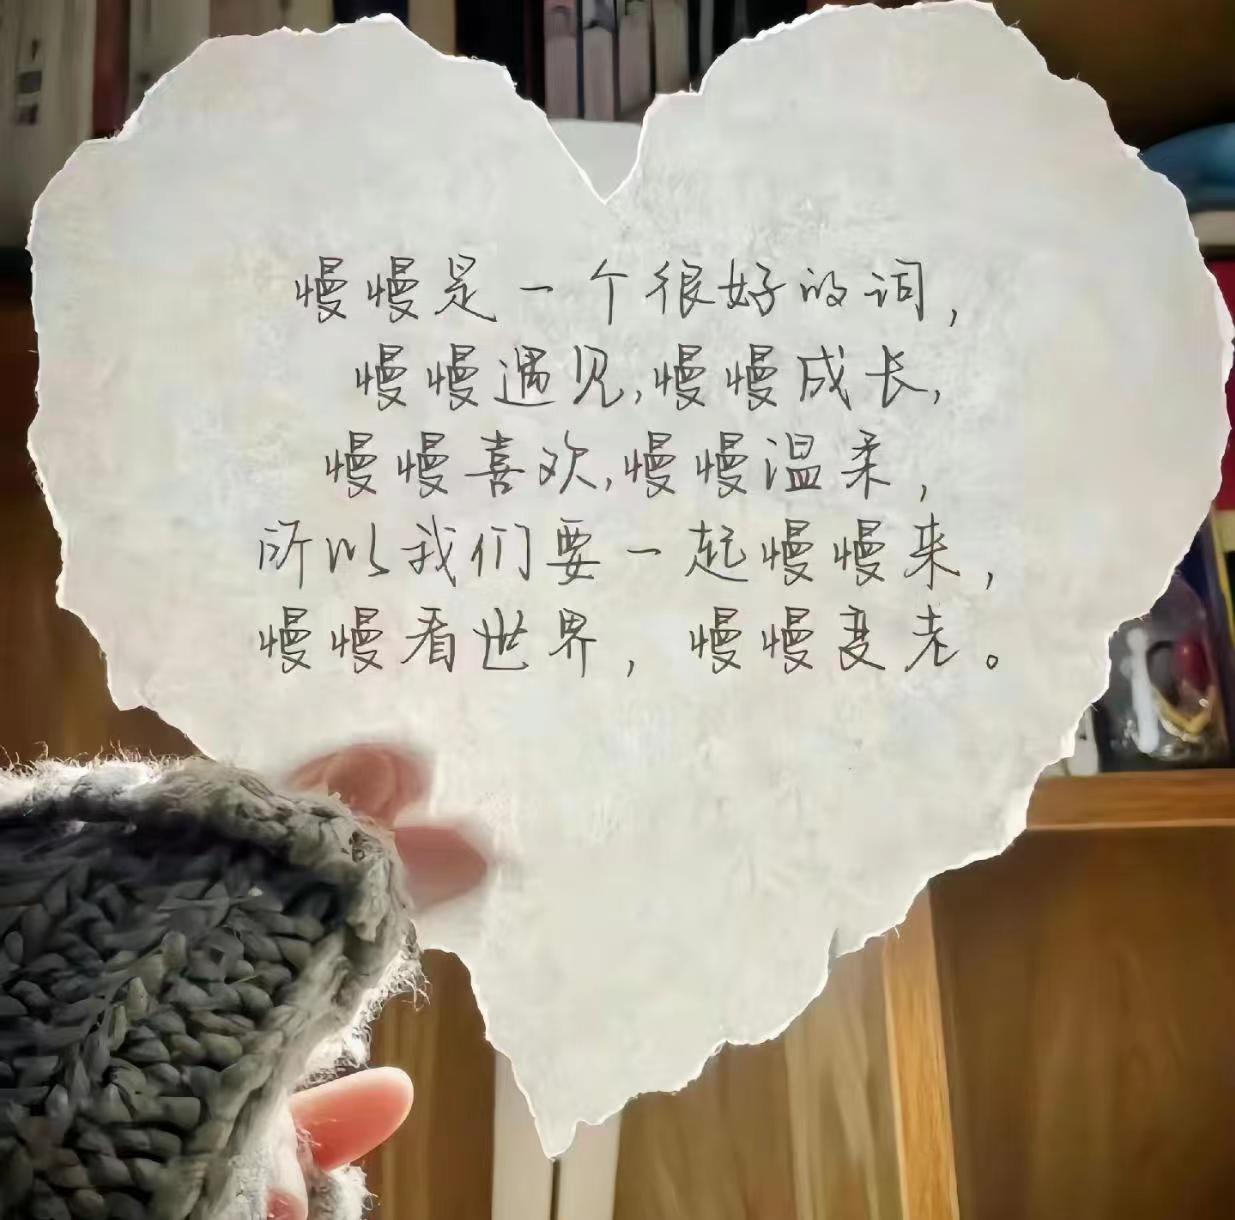 慢慢是一个很好的词,
慢慢遇见,慢慢成长,
慢慢喜欢,慢慢温柔,
所以我们要一起慢慢来,
慢慢看世界,慢慢变老。